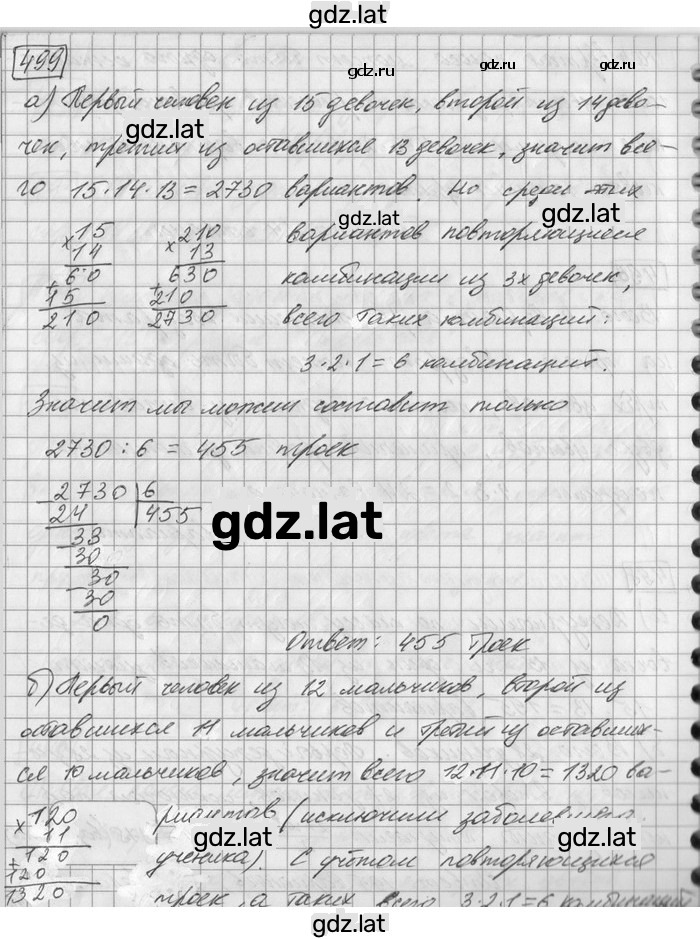 gdz.lat
499
gdz.ru
gdz.lat
а) Первый человек из 15 девочек, второй из 14 дево-
gdz.lat
gdz.lat
чек, третий из оставшихся 13 девочек, значит все-
го 15·14·13=2730 вариантов. Но среди этих
gdz.lat
gdz.lat
15 210 вариантов повторяющиеся
× 14 × 13
+ 60 + 630 комбинации из 3х девочек,
15 210
210 2730 всего таких комбинаций:
gdz.lat
gdz.lat
3·2·1=6 комбинаций.
Значит мы можем составить только
2730 : 6 = 455 троек
gdz.lat
gdz.lat
2730 6
24 455
33
30
30
30
0
gdz.lat
Ответ: 455 троек
gdz.lat
gdz.lat
б) Первый человек из 12 мальчиков, второй из
оставшихся 11 мальчиков и третий из оставших-
gdz.lat
gdz.lat
ся 10 мальчиков, значит всего 12·11·10=1320 ва-
120 риантов (исключили заболевшего
× 11
+ 120 ученика). С учётом повторяющихся
120
1320 троек, а таких всего 3·2·1=6 комбинаций
gdz.lat
gdz.lat
gdz.lat